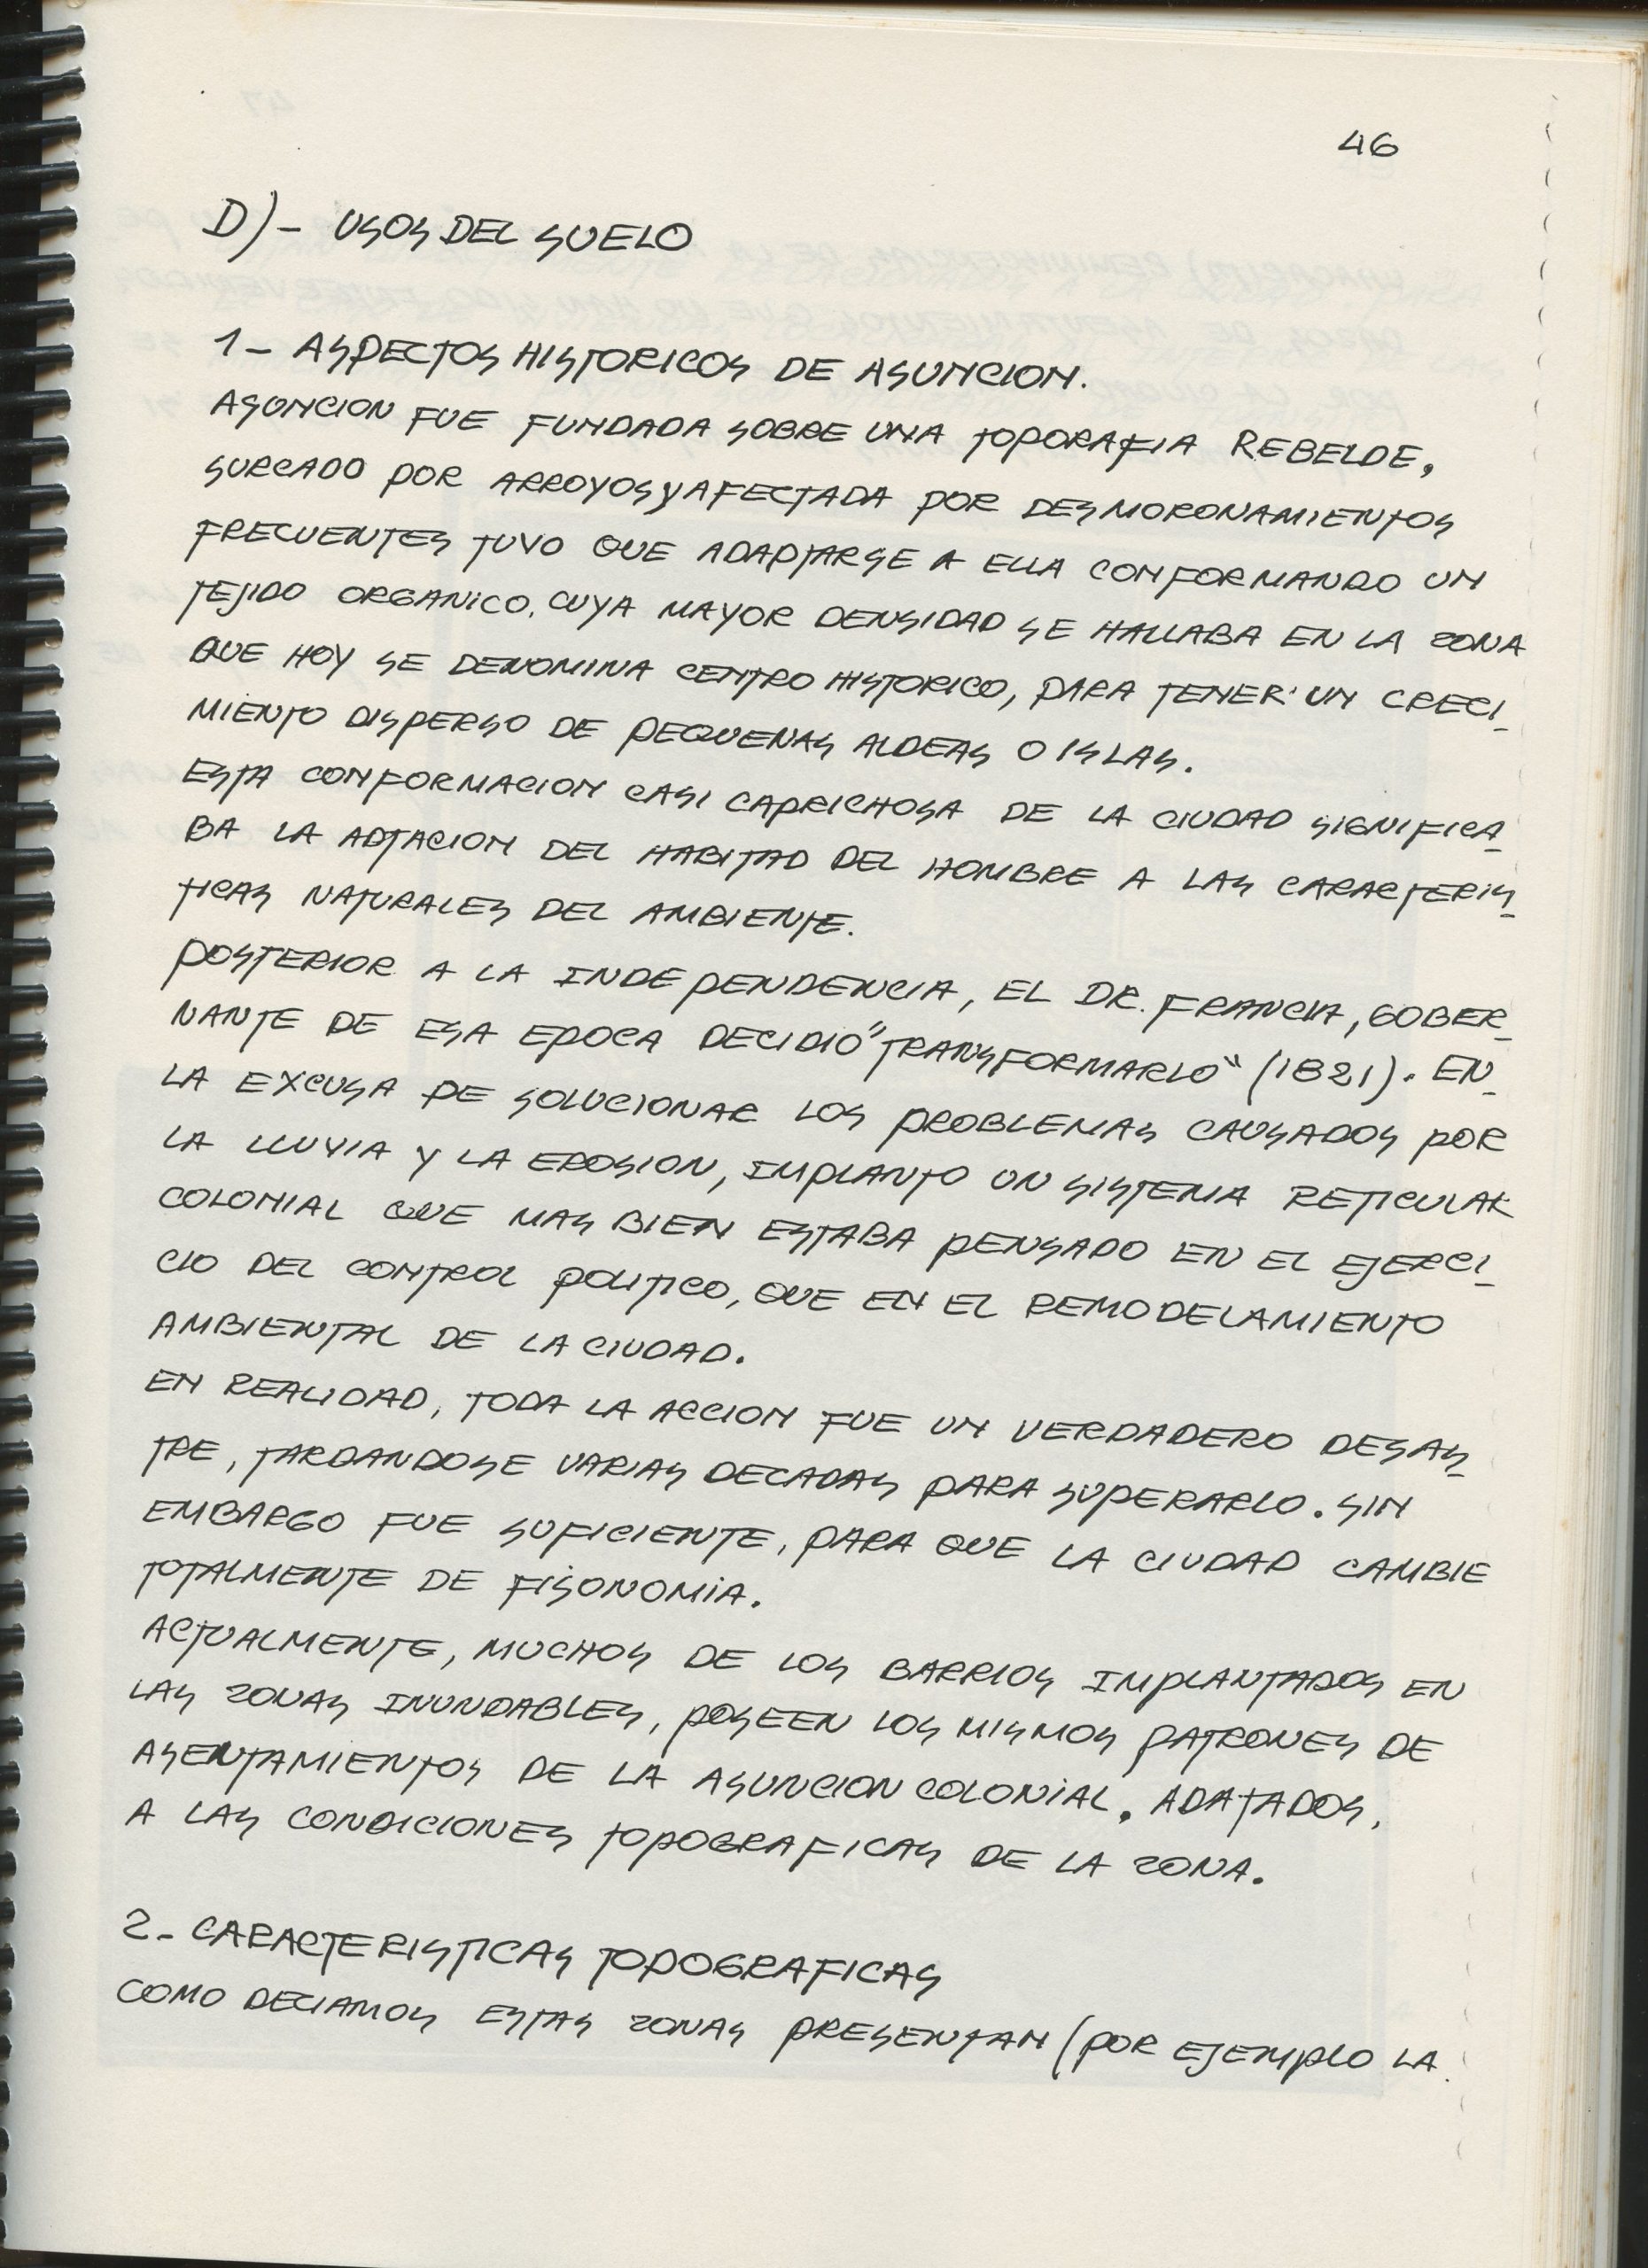 46
D)- USOS DEL SUELO
1- ASPECTOS HISTORICOS DE ASUNCION.
ASUNCION FUE FUNDADA SOBRE UNA TOPORAFIA REBELDE,
SURCADO POR ARROYOS Y AFECTADA POR DESMORONAMIENTOS
FRECUENTES TUVO QUE ADAPTARSE A ELLA CONFORMANDO UN
TEJIDO ORGANICO. CUYA MAYOR DENSIDAD SE HALLABA EN LA ZONA
QUE HOY SE DENOMINA CENTRO HISTORICO, PARA TENER UN CRECI_
MIENTO DISPERSO DE PEQUENAS ALDEAS O ISLAS.
ESTA CONFORMACION CASI CAPRICHOSA DE LA CIUDAD SIGNIFICA_
BA LA ADTACION DEL HABITAD DEL HOMBRE A LAS CARACTERIS_
TICAS NATURALES DEL AMBIENTE.
POSTERIOR A LA INDEPENDENCIA, EL DR. FRANCIA, GOBER_
NANTE DE ESA EPOCA DECIDIO "TRANSFORMARLO" (1821). EN_
LA EXCUSA DE SOLUCIONAR LOS PROBLEMAS CAUSADOS POR
LA LLUVIA Y LA EROSION, IMPLANTO UN SISTEMA RETICULAR
COLONIAL QUE MAS BIEN ESTABA PENSADO EN EL EJERCI_
CIO DEL CONTROL POLITICO, QUE EN EL REMODELAMIENTO
AMBIENTAL DE LA CIUDAD.
EN REALIDAD, TODA LA ACCION FUE UN VERDADERO DESAS_
TRE, TARDANDOSE VARIAS DECADAS PARA SUPERARLO. SIN
EMBARGO FUE SUFICIENTE, PARA QUE LA CIUDAD CAMBIE
TOTALMENTE DE FISONOMIA.
ACTUALMENTE, MUCHOS DE LOS BARRIOS IMPLANTADOS EN
LAS ZONAS INUNDABLES, POSEEN LOS MISMOS PATRONES DE
ASENTAMIENTOS DE LA ASUNCION COLONIAL, ADATADOS,
A LAS CONDICIONES TOPOGRAFICAS DE LA ZONA.
2- CARACTERISTICAS TOPOGRAFICAS
COMO DECIAMOS ESTAS ZONAS PRESENTAN (POR EJEMPLO LA